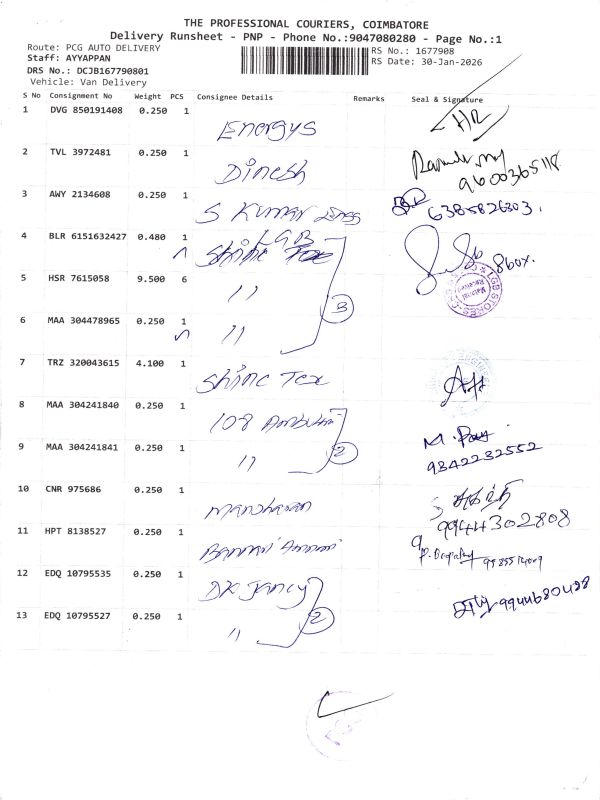 THE PROFESSIONAL COURIERS, COIMBATORE
Delivery Runsheet - PNP - Phone No.:9047080280 - Page No.:1
Route: PCG AUTO DELIVERY
RS No.: 1677908
Staff: AYYAPPAN
RS Date: 30-Jan-2026
DRS No.: DCJB167790801
Vehicle: Van Delivery
S No Consignment No Weight PCS Consignee Details Remarks Seal & Signature
1 DVG 850191408 0.250 1 Energys HR
2 TVL 3972481 0.250 1 Dinesh 9600365118
3 AWY 2134608 0.250 1 S Kumar Engg 6385826303.
4 BLR 6151632427 0.480 1 LGB 8box.
5 HSR 7615058 9.500 6 11 3 LGB STORES Material Received
6 MAA 304478965 0.250 1 11
5
7 TRZ 320043615 4.100 1 Shine Tex
8 MAA 304241840 0.250 1 108 2 M.
9 MAA 304241841 0.250 1 11 9342232552
10 CNR 975686 0.250 1 Manoharan 9944302808
11 HPT 8138527 0.250 1 Bannari Amman
12 EDQ 10795535 0.250 1 DK Jancy 2 9944680488
13 EDQ 10795527 0.250 1 11